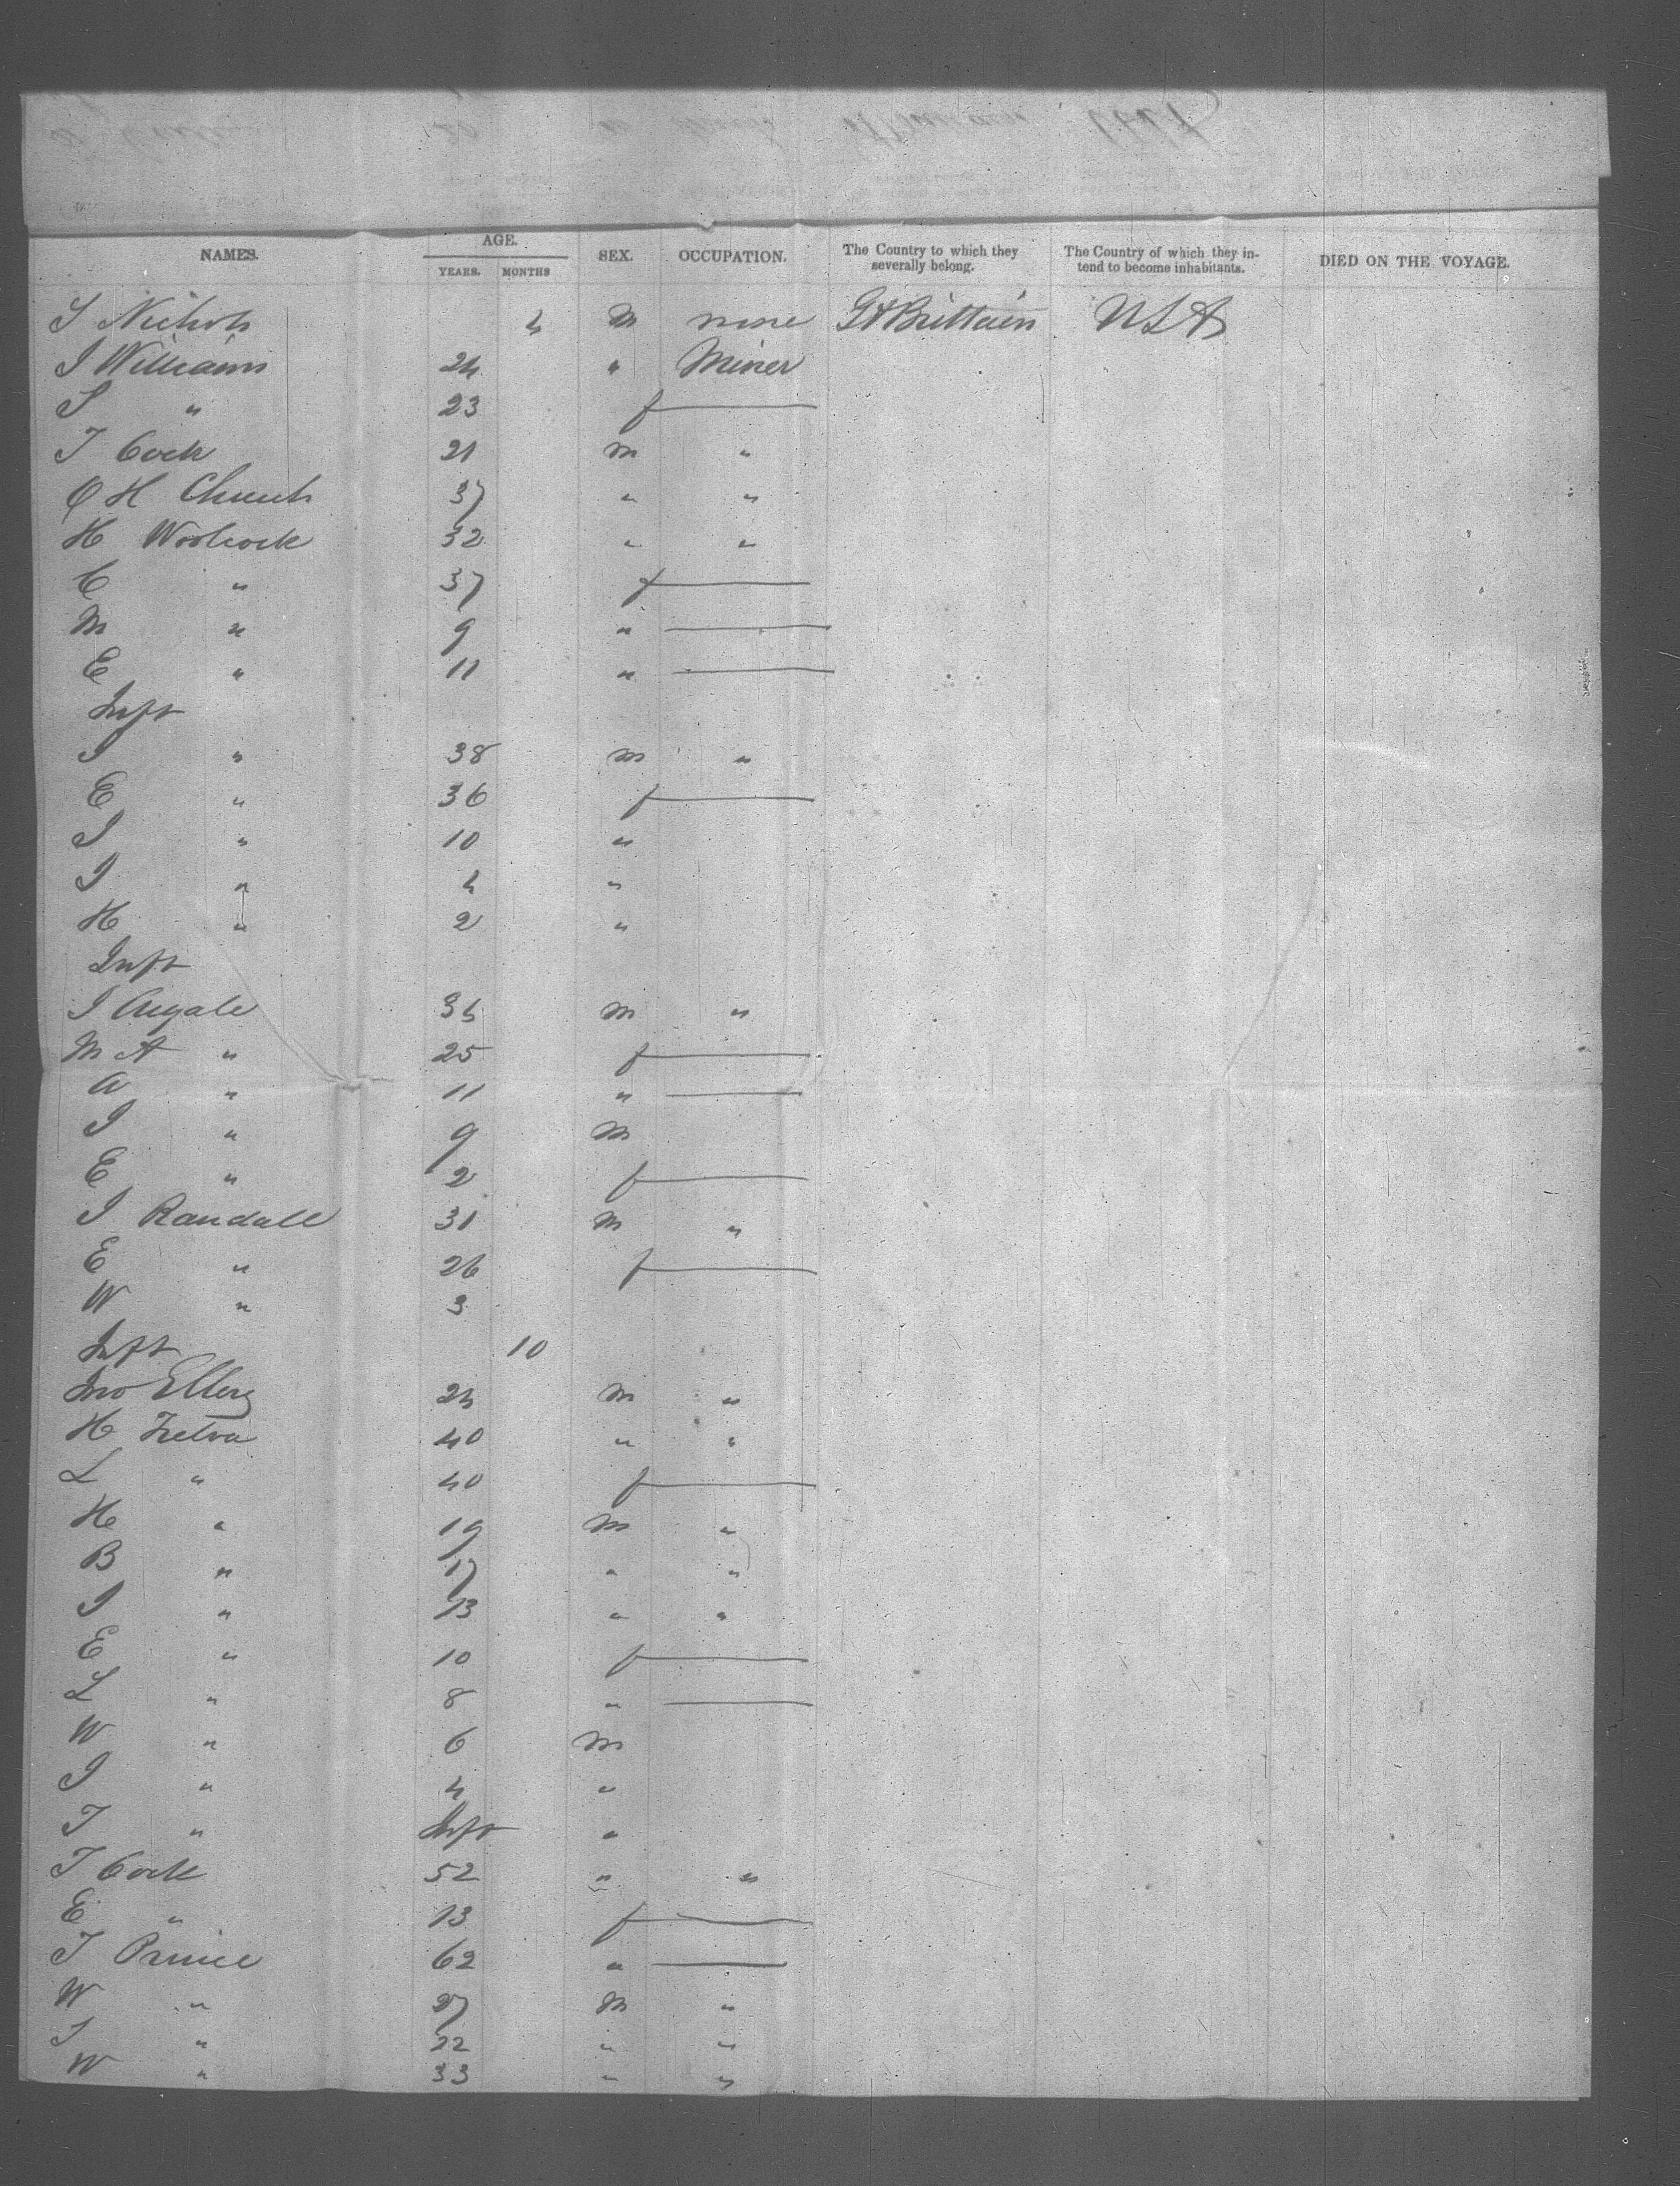 NAMES. AGE. YEARS. MONTHS SEX. OCCUPATION. The Country to which they severally belong. The Country of which they intend to become inhabitants. DIED ON THE VOYAGE.
S Nichols 4 M none Gt Brittain USA
J Williams 24 " Miner
S " 23 f
T Cock 21 m "
C H Church 37 " "
H Woolcock 32 " "
C " 37 f
M " 9 "
E " 11 "
Inft
J " 38 m "
E " 36 f
J " 10 "
J " 4 "
H " 2 "
Inft
J Argale 34 m "
M A " 25 f
A " 11 "
J " 9 M
E " 2 f
J Randall 31 M "
E " 26 f
W " 3
Inft 10
Jno Ellery 24 M "
H Trelva 40 " "
L " 40 f
H " 19 m "
B " 17 " "
J " 13 " "
E " 10 f
L " 8 "
W " 6 m
J " 4 "
T " Inft "
T Cock 52 " "
E " 13 f
T Prince 62 "
W " 27 M "
T " 22 " "
W " 33 " "